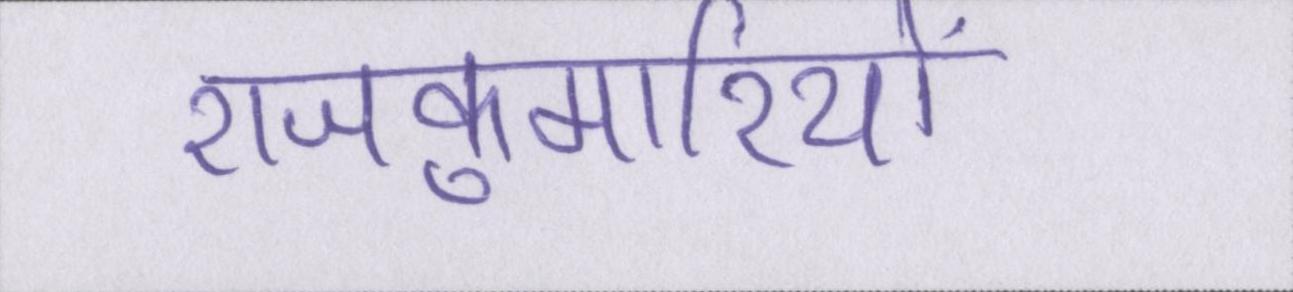 राजकुमारियों